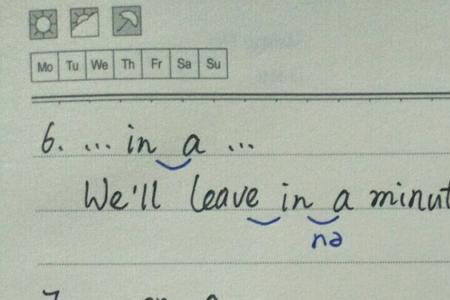 Mo Tu We Th Fr Sa Su
6. ... in a ...
We'll leave in a minut
nə